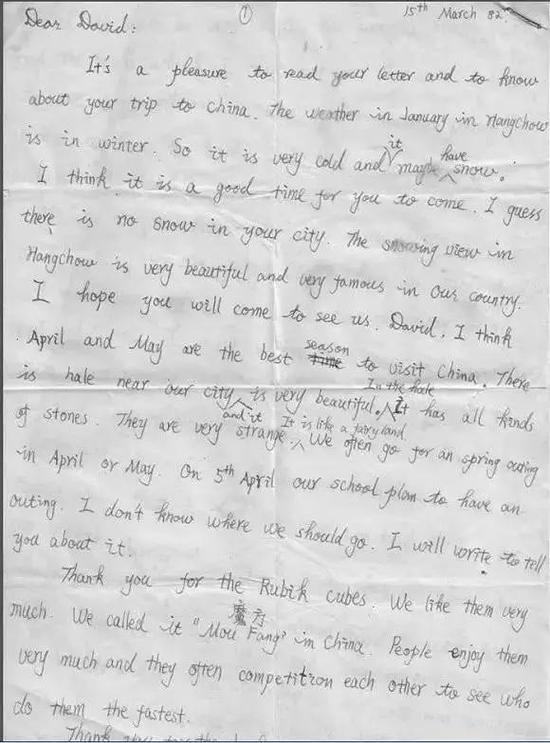 ①
15th March 82.
Dear David:
It's a pleasure to read your letter and to know
about your trip to China. The weather in January in Hangchow
is in winter. So it is very cold and it maybe have snow.
I think it is a good time for you to come. I guess
there is no snow in your city. The snowing view in
Hangchow is very beautiful and very famous in our country.
I hope you will come to see us. David. I think
April and May are the best time season to visit China. There
is hale near our city and it is very beautiful. In the hale It has all kinds
of stones. They are very strange. It is like a fairy land We often go for an spring outing
in April or May. On 5th April our school plan to have an
outing. I don't know where we should go. I will write to tell
you about it.
Thank you for the Rubik cubes. We like them very
much. We called it "Mou Fang" 魔方 in China. People enjoy them
very much and they often competition each other to see who
do them the fastest.
Thank you for the